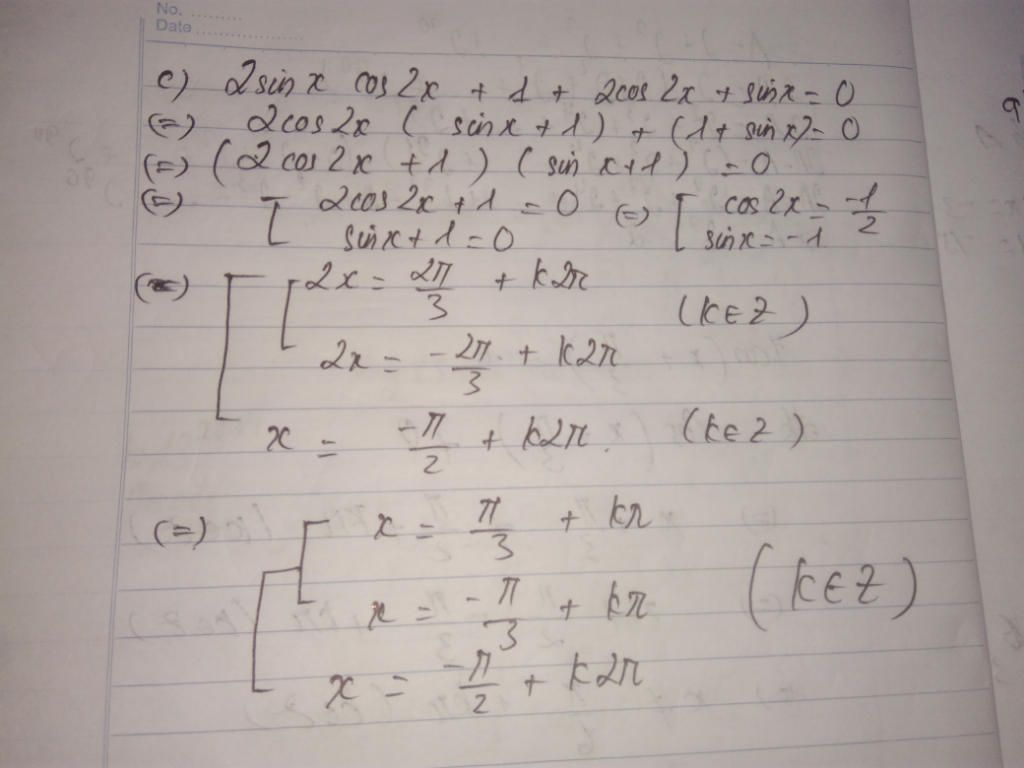 No. ..........
Date ....................
c) 2sinx cos2x + 1 + 2cos2x + sinx = 0
(=) 2cos2x ( sinx + 1 ) + (1 + sinx) = 0
(=) (2cos2x + 1 ) ( sinx + 1 ) = 0
(=) [ 2cos2x + 1 = 0 (=) [ cos2x = -1/2
sinx + 1 = 0 sinx = -1
(=) [ [ 2x = 2π/3 + k2π (k∈Z)
2x = -2π/3 + k2π
x = -π/2 + k2π. (k∈Z)
(=) [ [ x = π/3 + kπ
x = -π/3 + kπ (k∈Z)
x = -π/2 + k2π